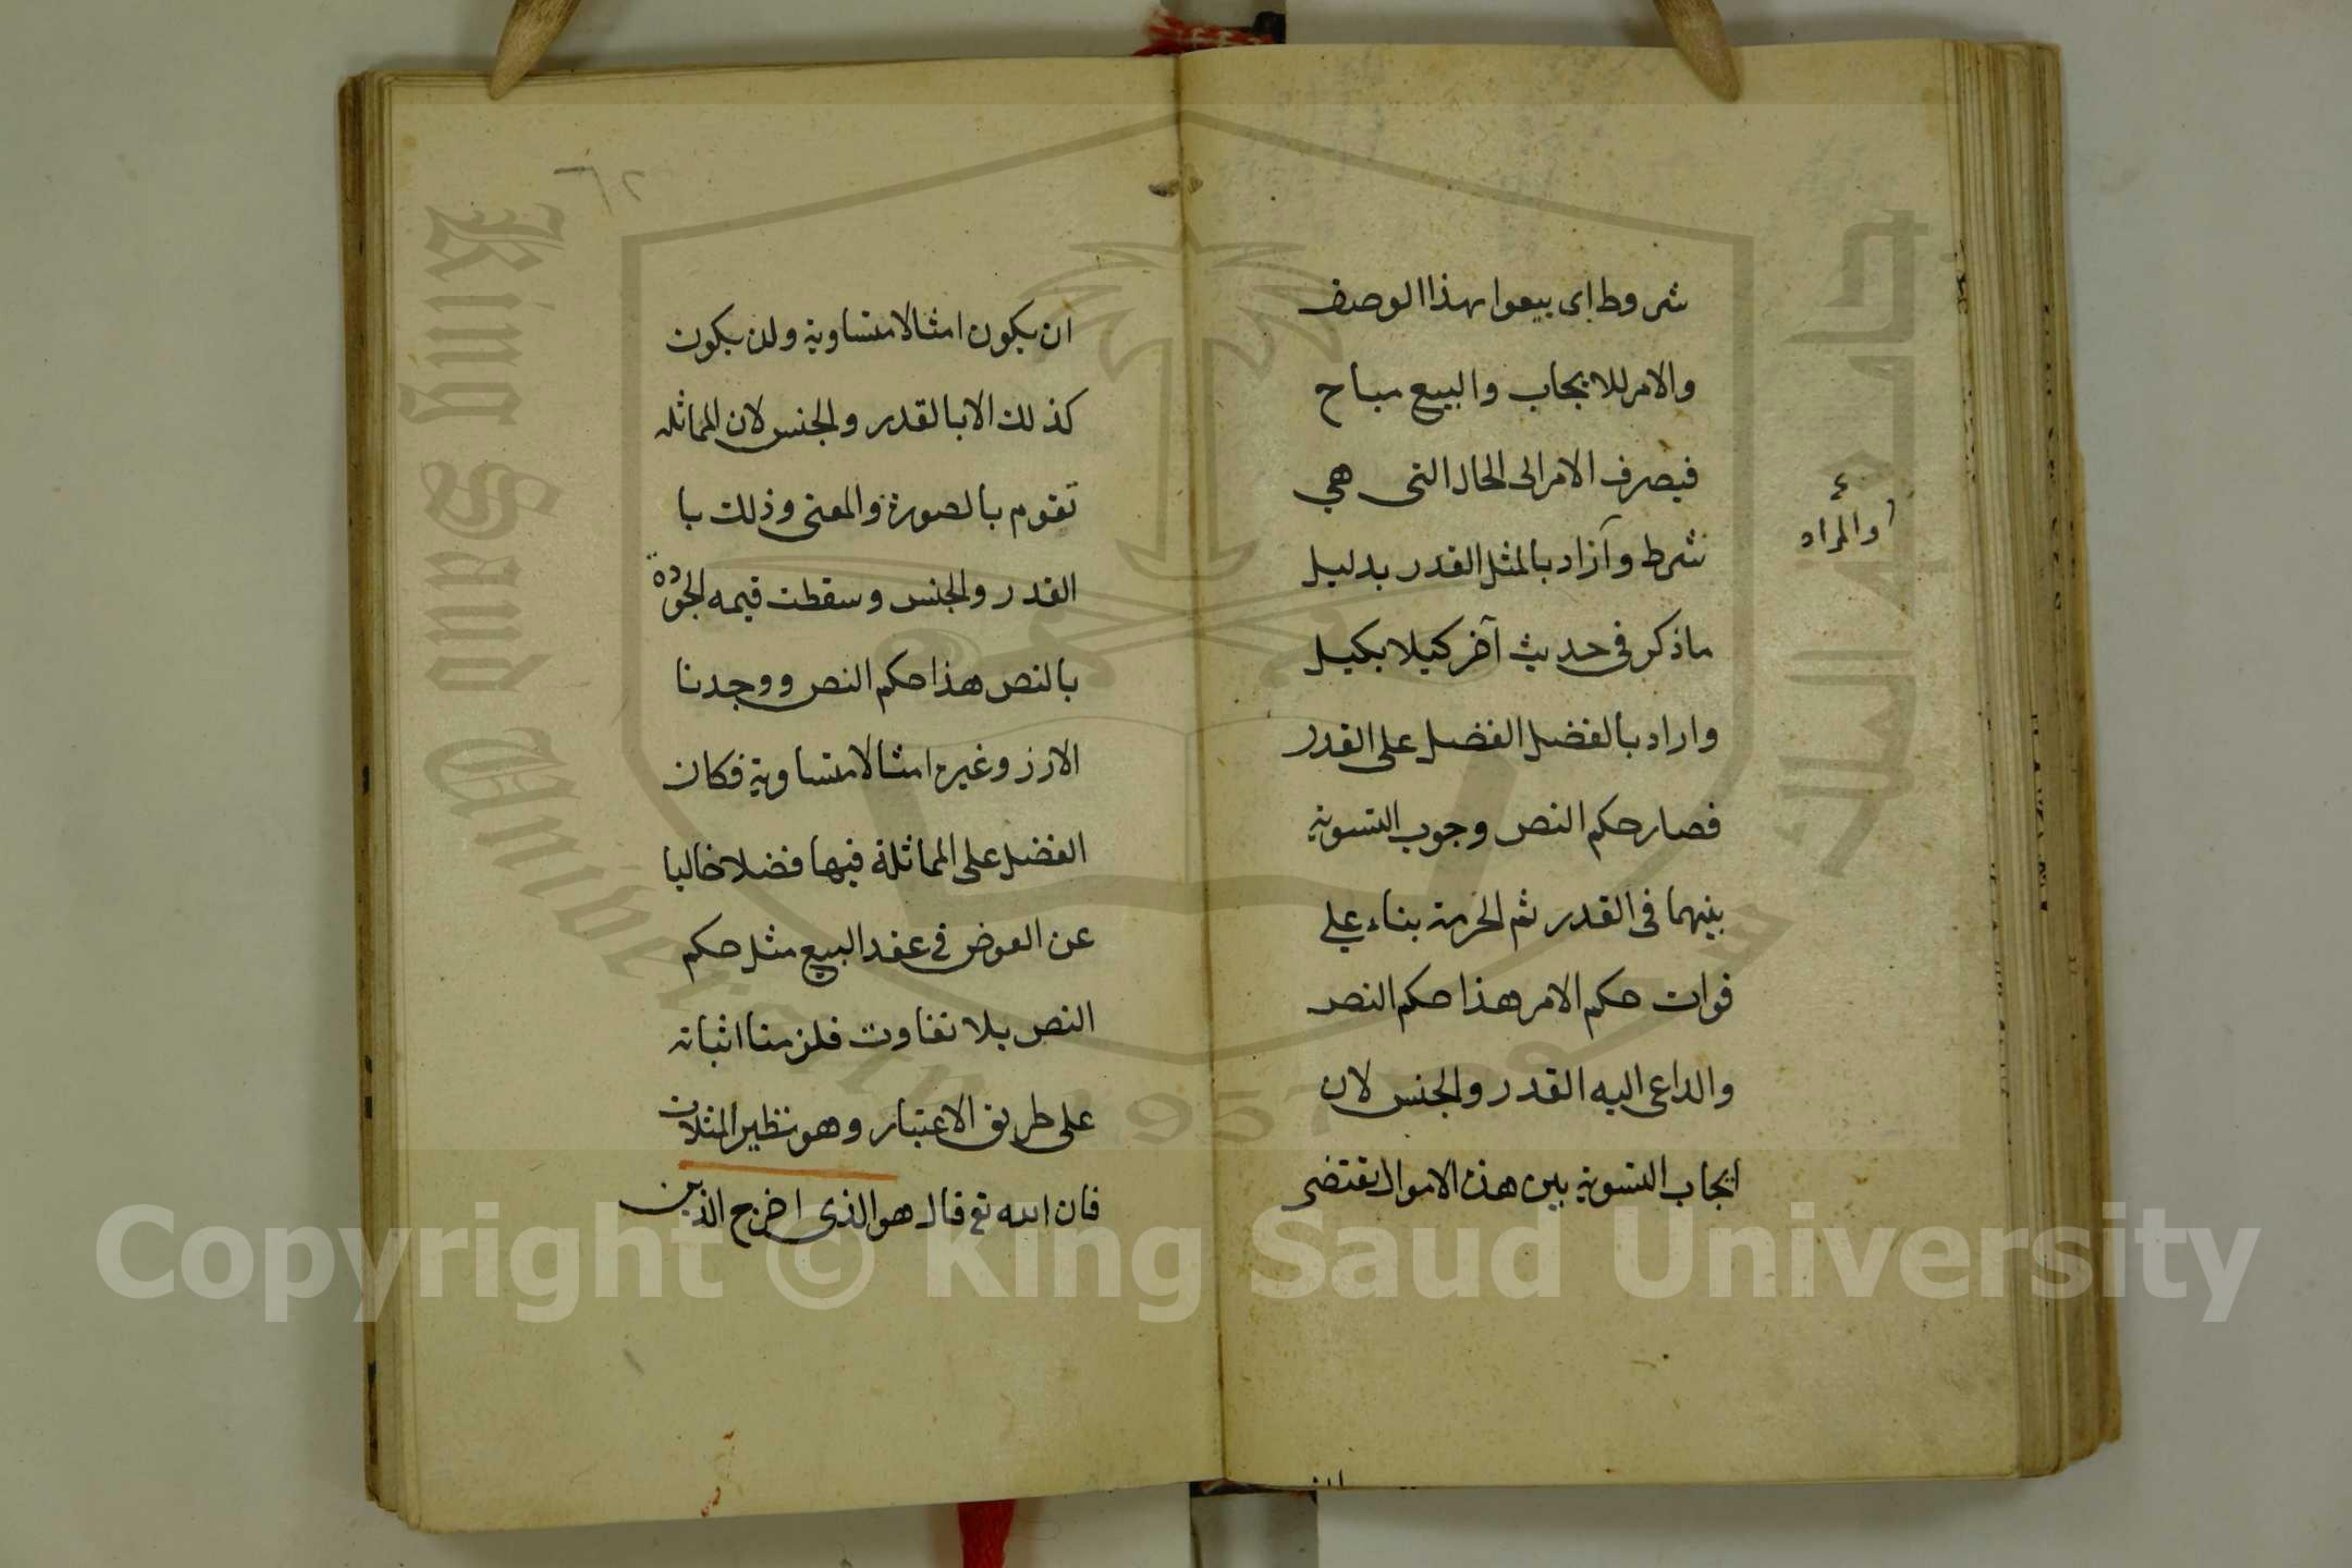 شروط اى بيعوا بهذا الوصف
والامر للايجاب والبيع مباح
فيصرف الامر الى الحال التى هى
شرط وآراد بالمثل القدر بدليل
ماذكر فى حديث آخر كيلا بكيل
واراد بالفضل الفضل على القدر
فصار حكم النص وجوب التسوية
بينهما فى القدر ثم الحرمة بناء على
فوات حكم الامر هذا حكم النص
والداعى اليه القدر والجنس لان
ايجاب التسوية بين هذه الاموال يقتضى
والمراد
٦٢
ان يكون امثالا متساوية ولن يكون
كذلك الا بالقدر والجنس لان المماثلة
تقوم بالصورة والمعنى وذلك با
القدر والجنس وسقطت قيمه الجودة
بالنص هذا حكم النص ووجدنا
الارز وغيره امثالا متساوية فكان
الفضل على المماثلة فيها فضلا خاليا
عن العوض فى عقد البيع مثل حكم
النص بلا تفاوت فلزمنا اثباته
على طريق الاعتبار وهو نظير المثلات
فان الله تع قال هو الذى اخرج الذين
King Saud University
جامعة الملك سعود
1957
Copyright © King Saud University